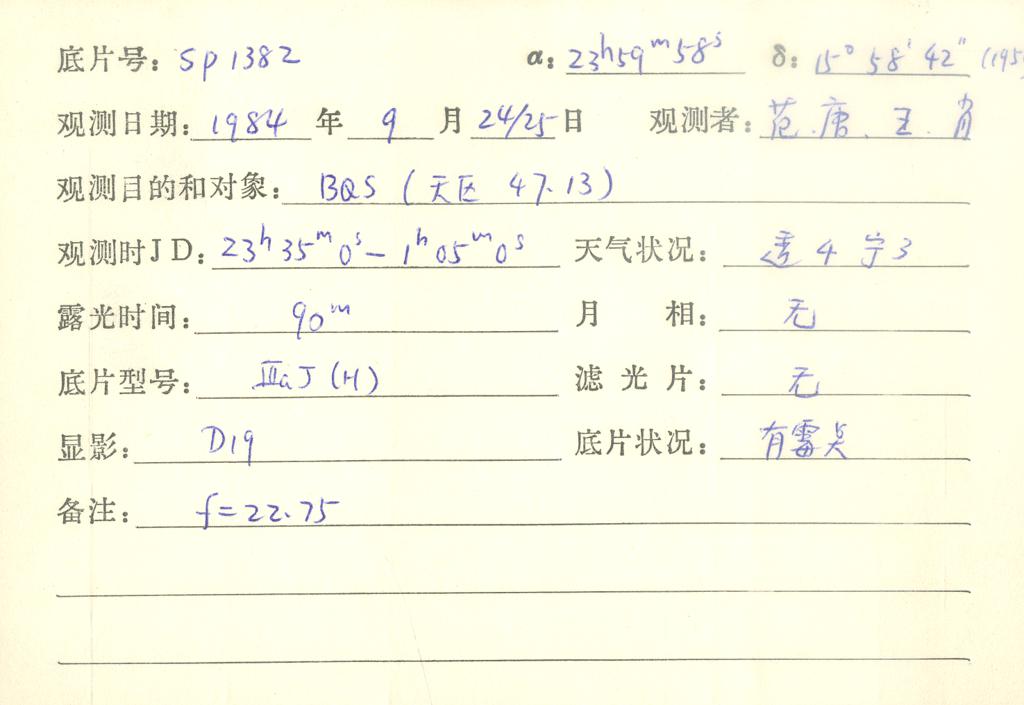 底片号: Sp 1382 α: 23h59m58s δ: 15° 58′ 42″ (195
观测日期: 1984 年 9 月 24/25 日 观测者: 范、唐、王、肖
观测目的和对象: BQS (天区 47.13)
观测时JD: 23h35m0s — 1h05m0s 天气状况: 透4 宁3
露光时间: 90m 月 相: 无
底片型号: ⅢaJ (H) 滤 光 片: 无
显影: D19 底片状况: 有霉点
备注: f=22.75